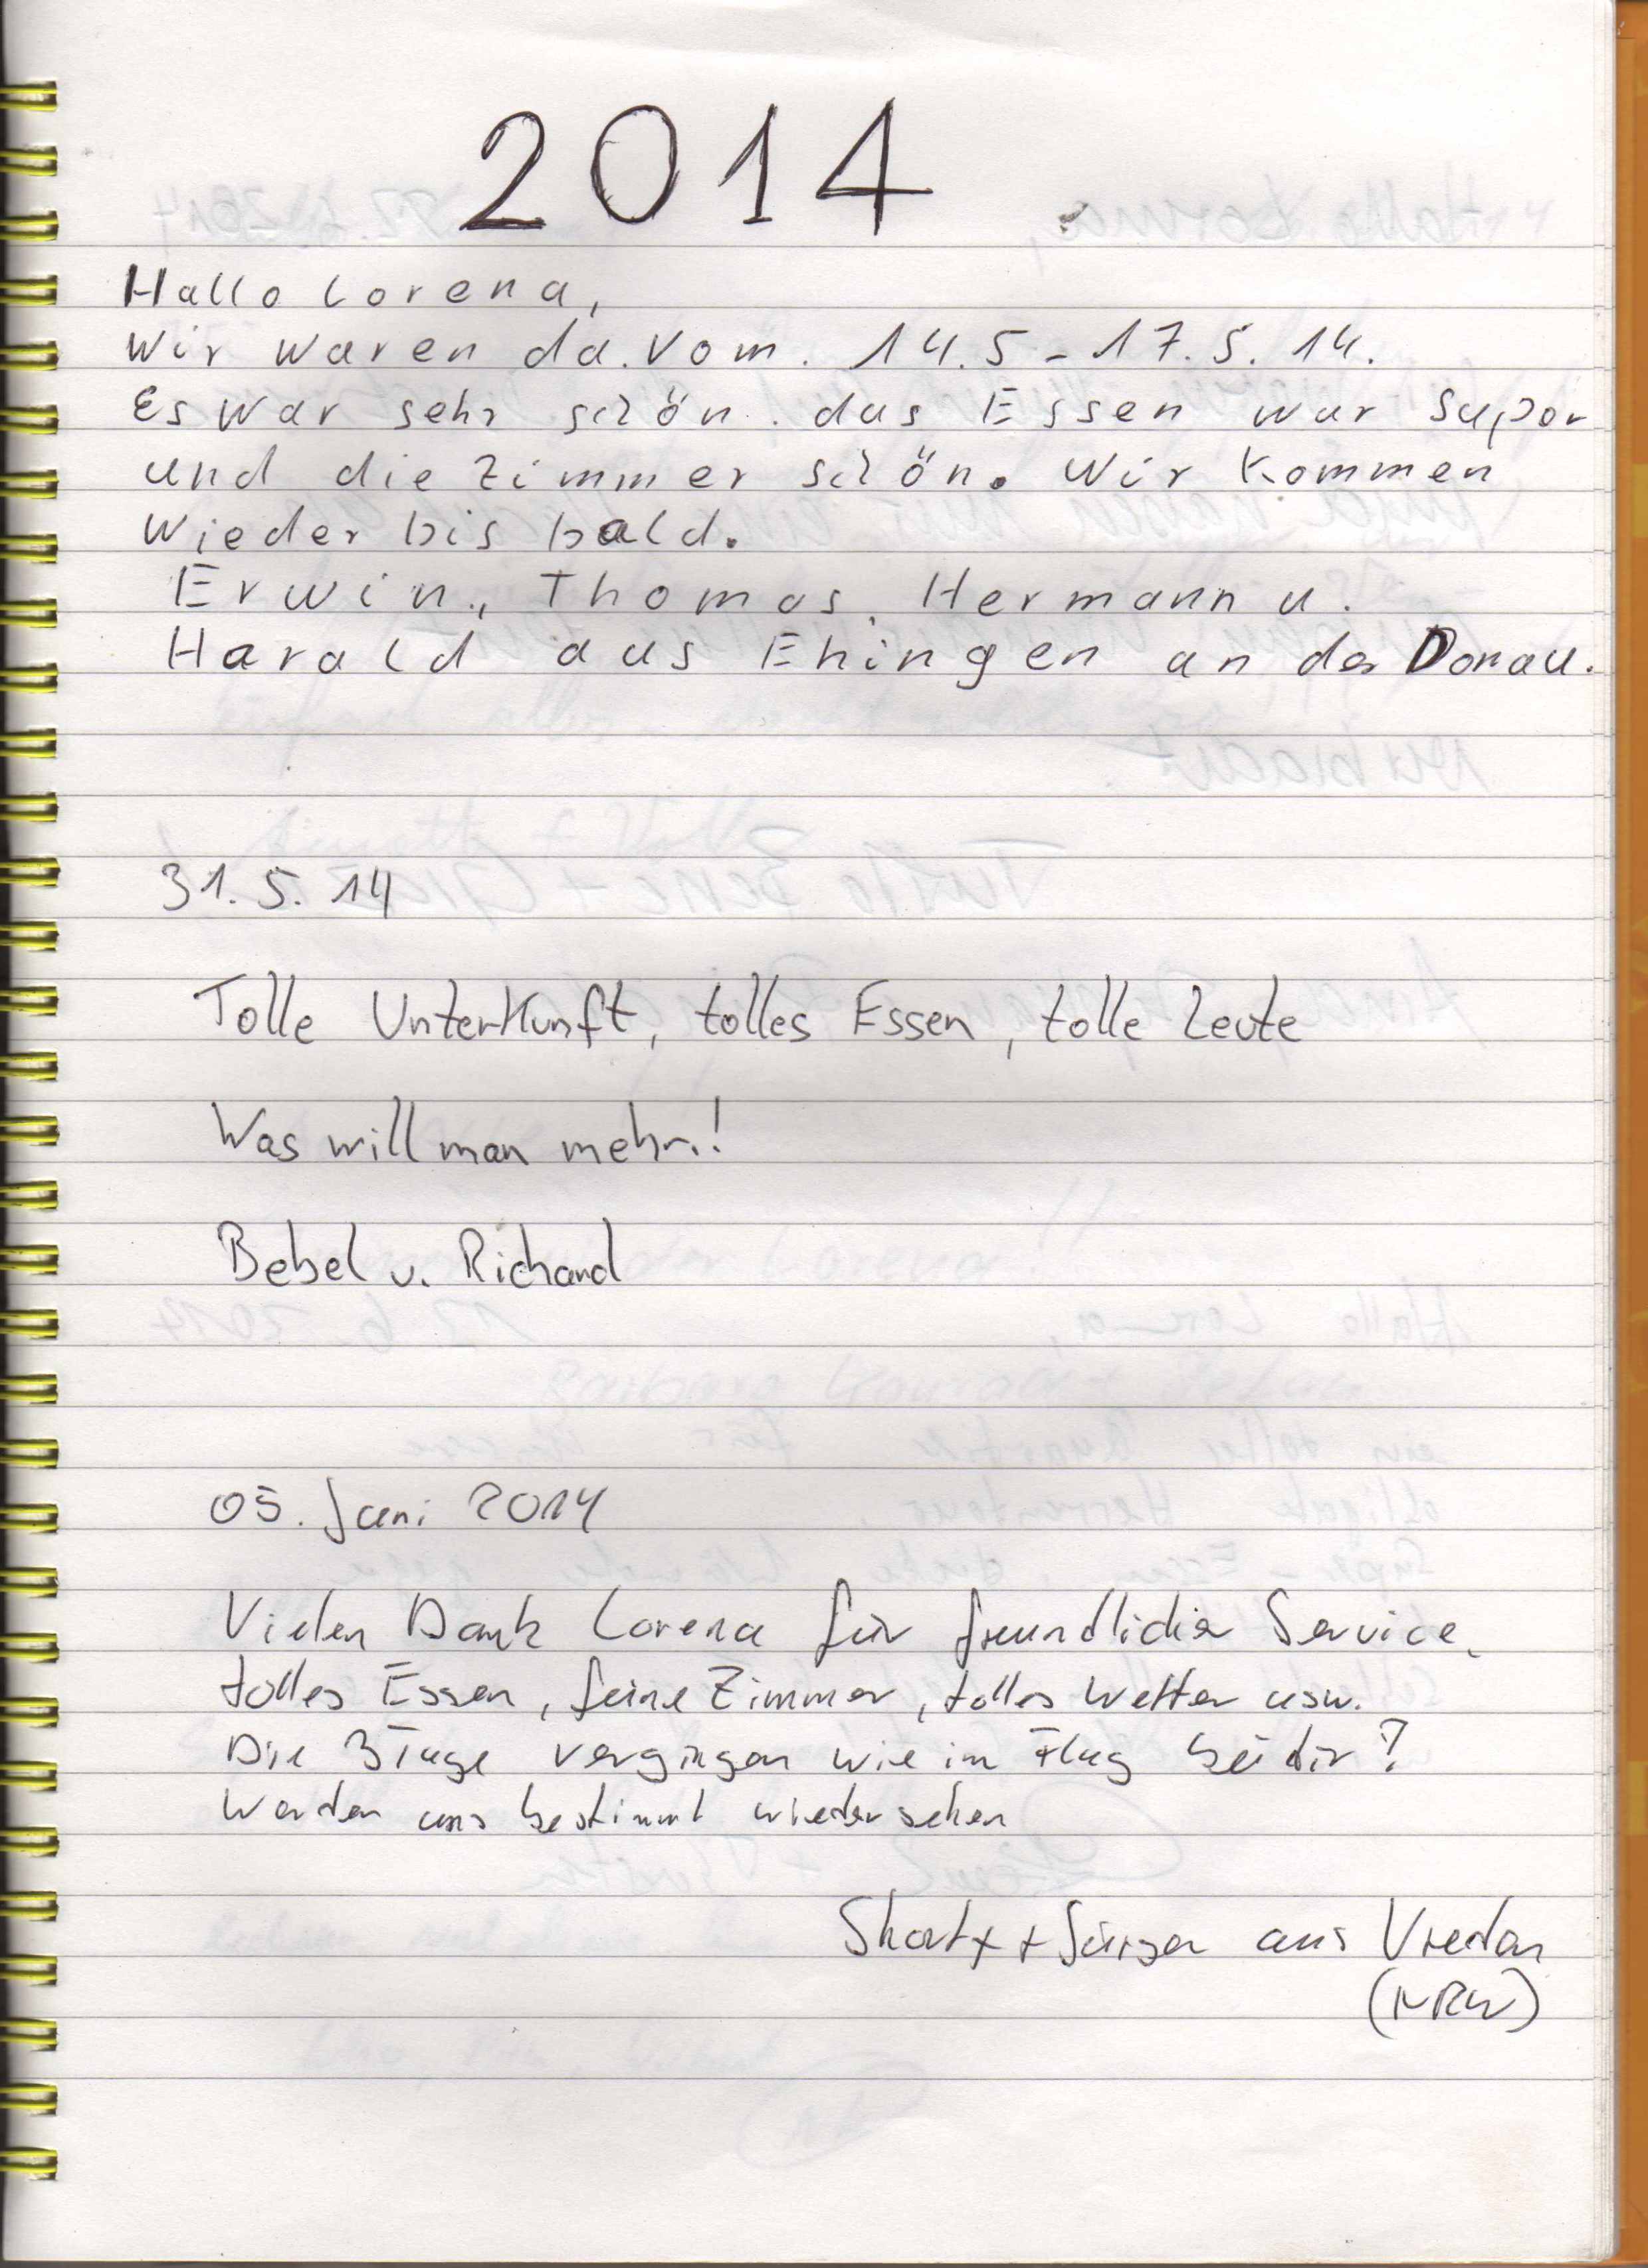 2014
Hallo Lorena,
Wir waren da. Vom. 14.5 - 17.5.14.
Es war sehr schön. das Essen war Super
und die Zimmer schön. Wir kommen
Wieder bis bald.
Erwin., Thomas, Hermann u.
Harald aus Ehingen an der Donau.
31.5.14
Tolle Unterkunft, tolles Essen, tolle Leute
Was will man mehr!
Bebel u. Richard
05. Juni 2014
Vielen Dank Lorena für freundlicher Service,
tolles Essen, feine Zimmer, tolles Wetter usw.
Die 3 Tage vergingen wie im Flug bei dir!
Werden uns bestimmt wieder sehen
aus Vreden
(NRW)